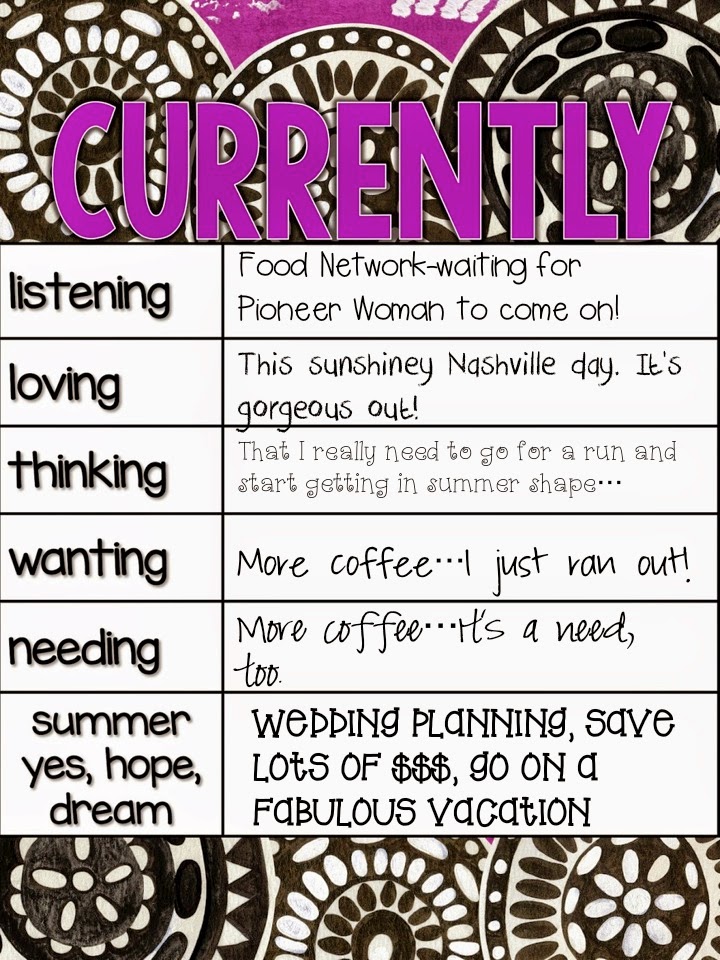 CURRENTLY
listening
Food Network-waiting for
Pioneer Woman to come on!
loving
This sunshiney Nashville day. It's
gorgeous out!
thinking
That I really need to go for a run and
start getting in summer shape...
wanting
More coffee...I just ran out!
needing
More coffee...It's a need,
too.
summer
yes, hope,
dream
Wedding planning, save
lots of $$$, go on a
fabulous vacation